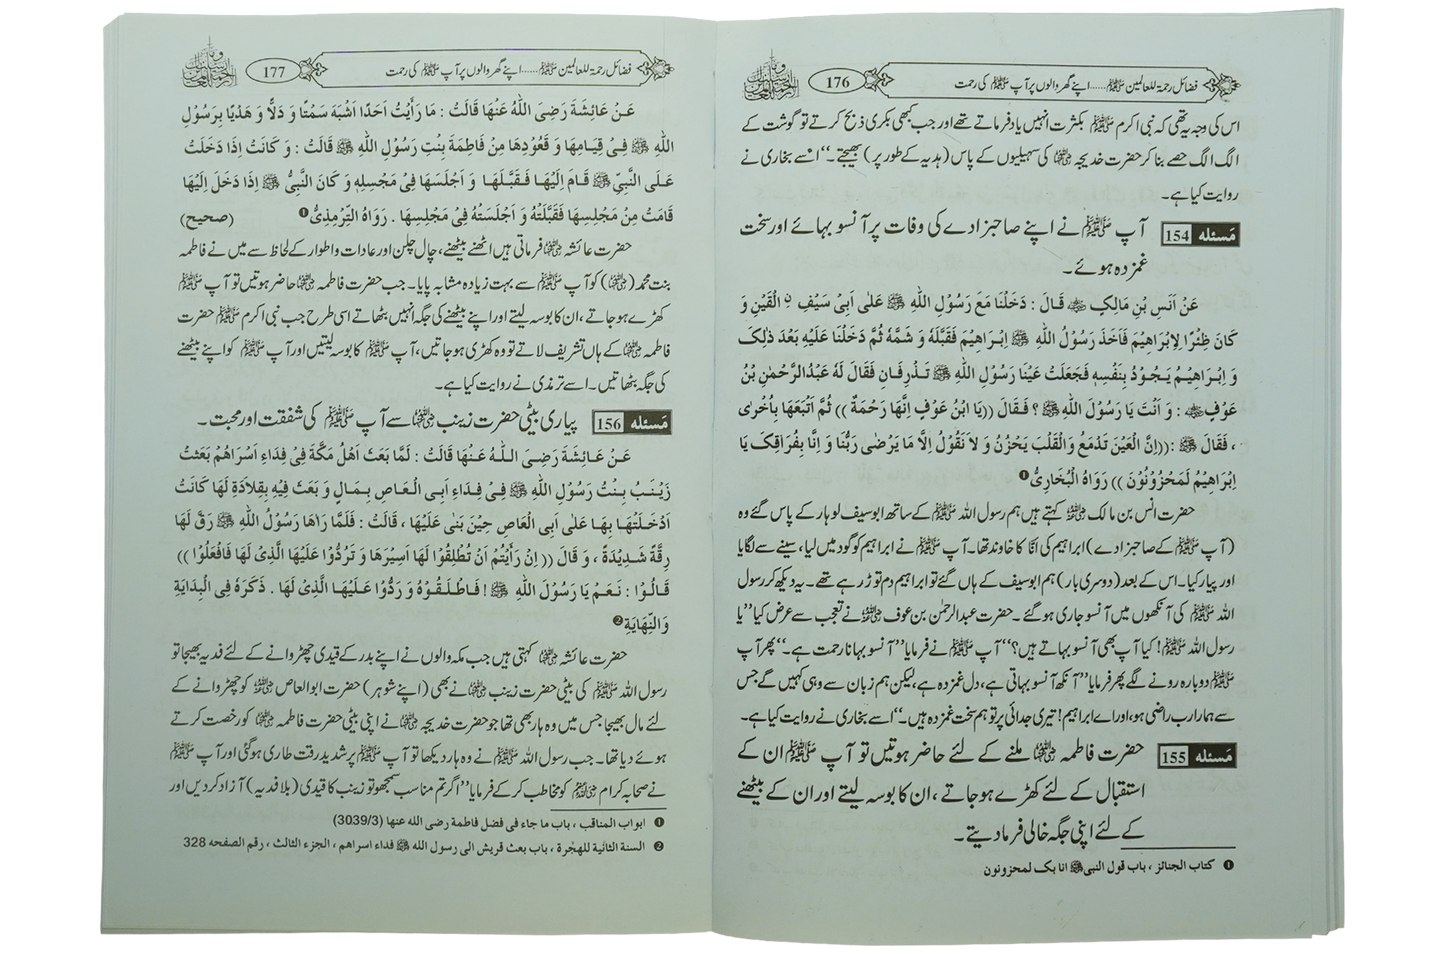 176
فضائل رحمۃ للعالمین ﷺ......اپنے گھر والوں پر آپ ﷺ کی رحمت
اس کی وجہ یہ تھی کہ نبی اکرم ﷺ بکثرت انہیں یاد فرماتے تھے اور جب کبھی بکری ذبح کرتے تو گوشت کے
الگ الگ حصے بنا کر حضرت خدیجہ ؓ کی سہیلیوں کے پاس (ہدیہ کے طور پر) بھیجتے۔‘‘ اسے بخاری نے
روایت کیا ہے۔
مَسئله 154 آپ ﷺ نے اپنے صاحبزادے کی وفات پر آنسو بہائے اور سخت
غمزدہ ہوئے۔
عَنْ اَنَسِ بْنِ مَالِکٍ ؓ قَالَ : دَخَلْنَا مَعَ رَسُوْلِ اللّٰهِ ﷺ عَلٰی اَبِیْ سَیْفِ نِ الْقَیْنِ وَ
کَانَ ظِئْرًا لِاِبْرَاهِیْمَ فَاَخَذَ رَسُوْلُ اللّٰهِ ﷺ اِبْرَاهِیْمَ فَقَبَّلَهٗ وَ شَمَّهٗ ثُمَّ دَخَلْنَا عَلَیْهِ بَعْدَ ذٰلِکَ
وَ اِبْرَاهِیْمُ یَجُوْدُ بِنَفْسِهٖ فَجَعَلَتْ عَیْنَا رَسُوْلِ اللّٰهِ ﷺ تَذْرِفَانِ فَقَالَ لَهٗ عَبْدُالرَّحْمٰنِ بْنُ
عَوْفٍ ؓ : وَ اَنْتَ یَا رَسُوْلَ اللّٰهِ ﷺ ؟ فَقَالَ ((یَا ابْنَ عَوْفٍ اِنَّهَا رَحْمَةٌ )) ثُمَّ اَتْبَعَهَا بِاُخْرٰی
، فَقَالَ ﷺ :((اِنَّ الْعَیْنَ تَدْمَعُ وَالْقَلْبَ یَحْزُنُ وَ لَا نَقُوْلُ اِلَّا مَا یَرْضٰی رَبُّنَا وَ اِنَّا بِفِرَاقِکَ یَا
اِبْرَاهِیْمُ لَمَحْزُوْنُوْنَ )) رَوَاهُ الْبُخَارِیُّ ❶
حضرت انس بن مالک ؓ کہتے ہیں ہم رسول اللہ ﷺ کے ساتھ ابوسیف لوہار کے پاس گئے وہ
(آپ ﷺ کے صاحبزادے) ابراہیم کی انّا کا خاوند تھا۔ آپ ﷺ نے ابراہیم کو گود میں لیا، سینے سے لگایا
اور پیار کیا۔ اس کے بعد (دوسری بار) ہم ابوسیف کے ہاں گئے تو ابراہیم دم توڑ رہے تھے۔ یہ دیکھ کر رسول
اللہ ﷺ کی آنکھوں میں آنسو جاری ہوگئے۔ حضرت عبدالرحمٰن بن عوف ؓ نے تعجب سے عرض کیا ’’یا
رسول اللہ ﷺ! کیا آپ بھی آنسو بہاتے ہیں؟‘‘ آپ ﷺ نے فرمایا ’’آنسو بہانا رحمت ہے۔‘‘ پھر آپ
ﷺ دوبارہ رونے لگے پھر فرمایا ’’آنکھ آنسو بہاتی ہے، دل غمزدہ ہے، لیکن ہم زبان سے وہی کہیں گے جس
سے ہمارا رب راضی ہو، اور اے ابراہیم! تیری جدائی پر تو ہم سخت غمزدہ ہیں۔‘‘ اسے بخاری نے روایت کیا ہے۔
مَسئله 155 حضرت فاطمہ ؓ ملنے کے لئے حاضر ہوتیں تو آپ ﷺ ان کے
استقبال کے لئے کھڑے ہوجاتے، ان کا بوسہ لیتے اور ان کے بیٹھنے
کے لئے اپنی جگہ خالی فرما دیتے۔
❶ کتاب الجنائز ، باب قول النبی ﷺ انا بک لمحزونون
177
فضائل رحمۃ للعالمین ﷺ......اپنے گھر والوں پر آپ ﷺ کی رحمت
عَنْ عَائِشَةَ رَضِیَ اللّٰهُ عَنْهَا قَالَتْ : مَا رَأَیْتُ اَحَدًا اَشْبَهَ سَمْتًا وَ دَلًّا وَ هَدْیًا بِرَسُوْلِ
اللّٰهِ ﷺ فِیْ قِیَامِهَا وَ قُعُوْدِهَا مِنْ فَاطِمَةَ بِنْتِ رَسُوْلِ اللّٰهِ ﷺ قَالَتْ : وَ کَانَتْ اِذَا دَخَلَتْ
عَلَی النَّبِیِّ ﷺ قَامَ اِلَیْهَا فَقَبَّلَهَا وَ اَجْلَسَهَا فِیْ مَجْلِسِهٖ وَ کَانَ النَّبِیُّ ﷺ اِذَا دَخَلَ اِلَیْهَا
قَامَتْ مِنْ مَجْلِسِهَا فَقَبَّلَتْهُ وَ اَجْلَسَتْهُ فِیْ مَجْلِسِهَا . رَوَاهُ التِّرْمِذِیُّ ❶ (صحیح)
حضرت عائشہ ؓ فرماتی ہیں اٹھنے بیٹھنے، چال چلن اور عادات و اطوار کے لحاظ سے میں نے فاطمہ
بنت محمد (ؓ) کو آپ ﷺ سے بہت زیادہ مشابہ پایا۔ جب حضرت فاطمہ ؓ حاضر ہوتیں تو آپ ﷺ
کھڑے ہو جاتے، ان کا بوسہ لیتے اور اپنے بیٹھنے کی جگہ انہیں بٹھاتے اسی طرح جب نبی اکرم ﷺ حضرت
فاطمہ ؓ کے ہاں تشریف لاتے تو وہ کھڑی ہو جاتیں، آپ ﷺ کا بوسہ لیتیں اور آپ ﷺ کو اپنے بیٹھنے
کی جگہ بٹھاتیں۔ اسے ترمذی نے روایت کیا ہے۔
مَسئله 156 پیاری بیٹی حضرت زینب ؓ سے آپ ﷺ کی شفقت اور محبت۔
عَنْ عَائِشَةَ رَضِیَ اللّٰهُ عَنْهَا قَالَتْ : لَمَّا بَعَثَ اَهْلُ مَکَّةَ فِیْ فِدَاءِ اَسْرَاهُمْ بَعَثَتْ
زَیْنَبُ بِنْتُ رَسُوْلِ اللّٰهِ ﷺ فِیْ فِدَاءِ اَبِی الْعَاصِ بِمَالٍ وَ بَعَثَ فِیْهِ بِقِلَادَةٍ لَهَا کَانَتْ
اَدْخَلَتْهَا بِهَا عَلٰی اَبِی الْعَاصِ حِیْنَ بَنٰی عَلَیْهَا ، قَالَتْ : فَلَمَّا رَاٰهَا رَسُوْلُ اللّٰهِ ﷺ رَقَّ لَهَا
رِقَّةً شَدِیْدَةً ، وَ قَالَ (( اِنْ رَأَیْتُمْ اَنْ تُطْلِقُوْا لَهَا اَسِیْرَهَا وَ تَرُدُّوْا عَلَیْهَا الَّذِیْ لَهَا فَافْعَلُوْا ))
قَالُوْا : نَعَمْ یَا رَسُوْلَ اللّٰهِ ﷺ ! فَاطْلَقُوْهُ وَ رَدُّوْا عَلَیْهَا الَّذِیْ لَهَا . ذَکَرَهُ فِی الْبِدَایَةِ
وَالنِّهَایَةِ ❷
حضرت عائشہ ؓ کہتی ہیں جب مکہ والوں نے اپنے بدر کے قیدی چھڑوانے کے لئے فدیہ بھیجا تو
رسول اللہ ﷺ کی بیٹی حضرت زینب ؓ نے بھی (اپنے شوہر) حضرت ابوالعاص ؓ کو چھڑوانے کے
لئے مال بھیجا جس میں وہ ہار بھی تھا جو حضرت خدیجہ ؓ نے اپنی بیٹی حضرت فاطمہ ؓ کو رخصت کرتے
ہوئے دیا تھا۔ جب رسول اللہ ﷺ نے وہ ہار دیکھا تو آپ ﷺ پر شدید رقت طاری ہوگئی اور آپ ﷺ
نے صحابہ کرام ؓ کو مخاطب کرکے فرمایا ’’اگر تم مناسب سمجھو تو زینب کا قیدی (بلا فدیہ) آزاد کردیں اور
❶ ابواب المناقب ، باب ما جاء فی فضل فاطمة رضی الله عنها (3039/3)
❷ السنة الثانية للهجرة ، باب بعث قريش الی رسول الله ﷺ فداء اسراهم ، الجزء الثالث ، رقم الصفحه 328